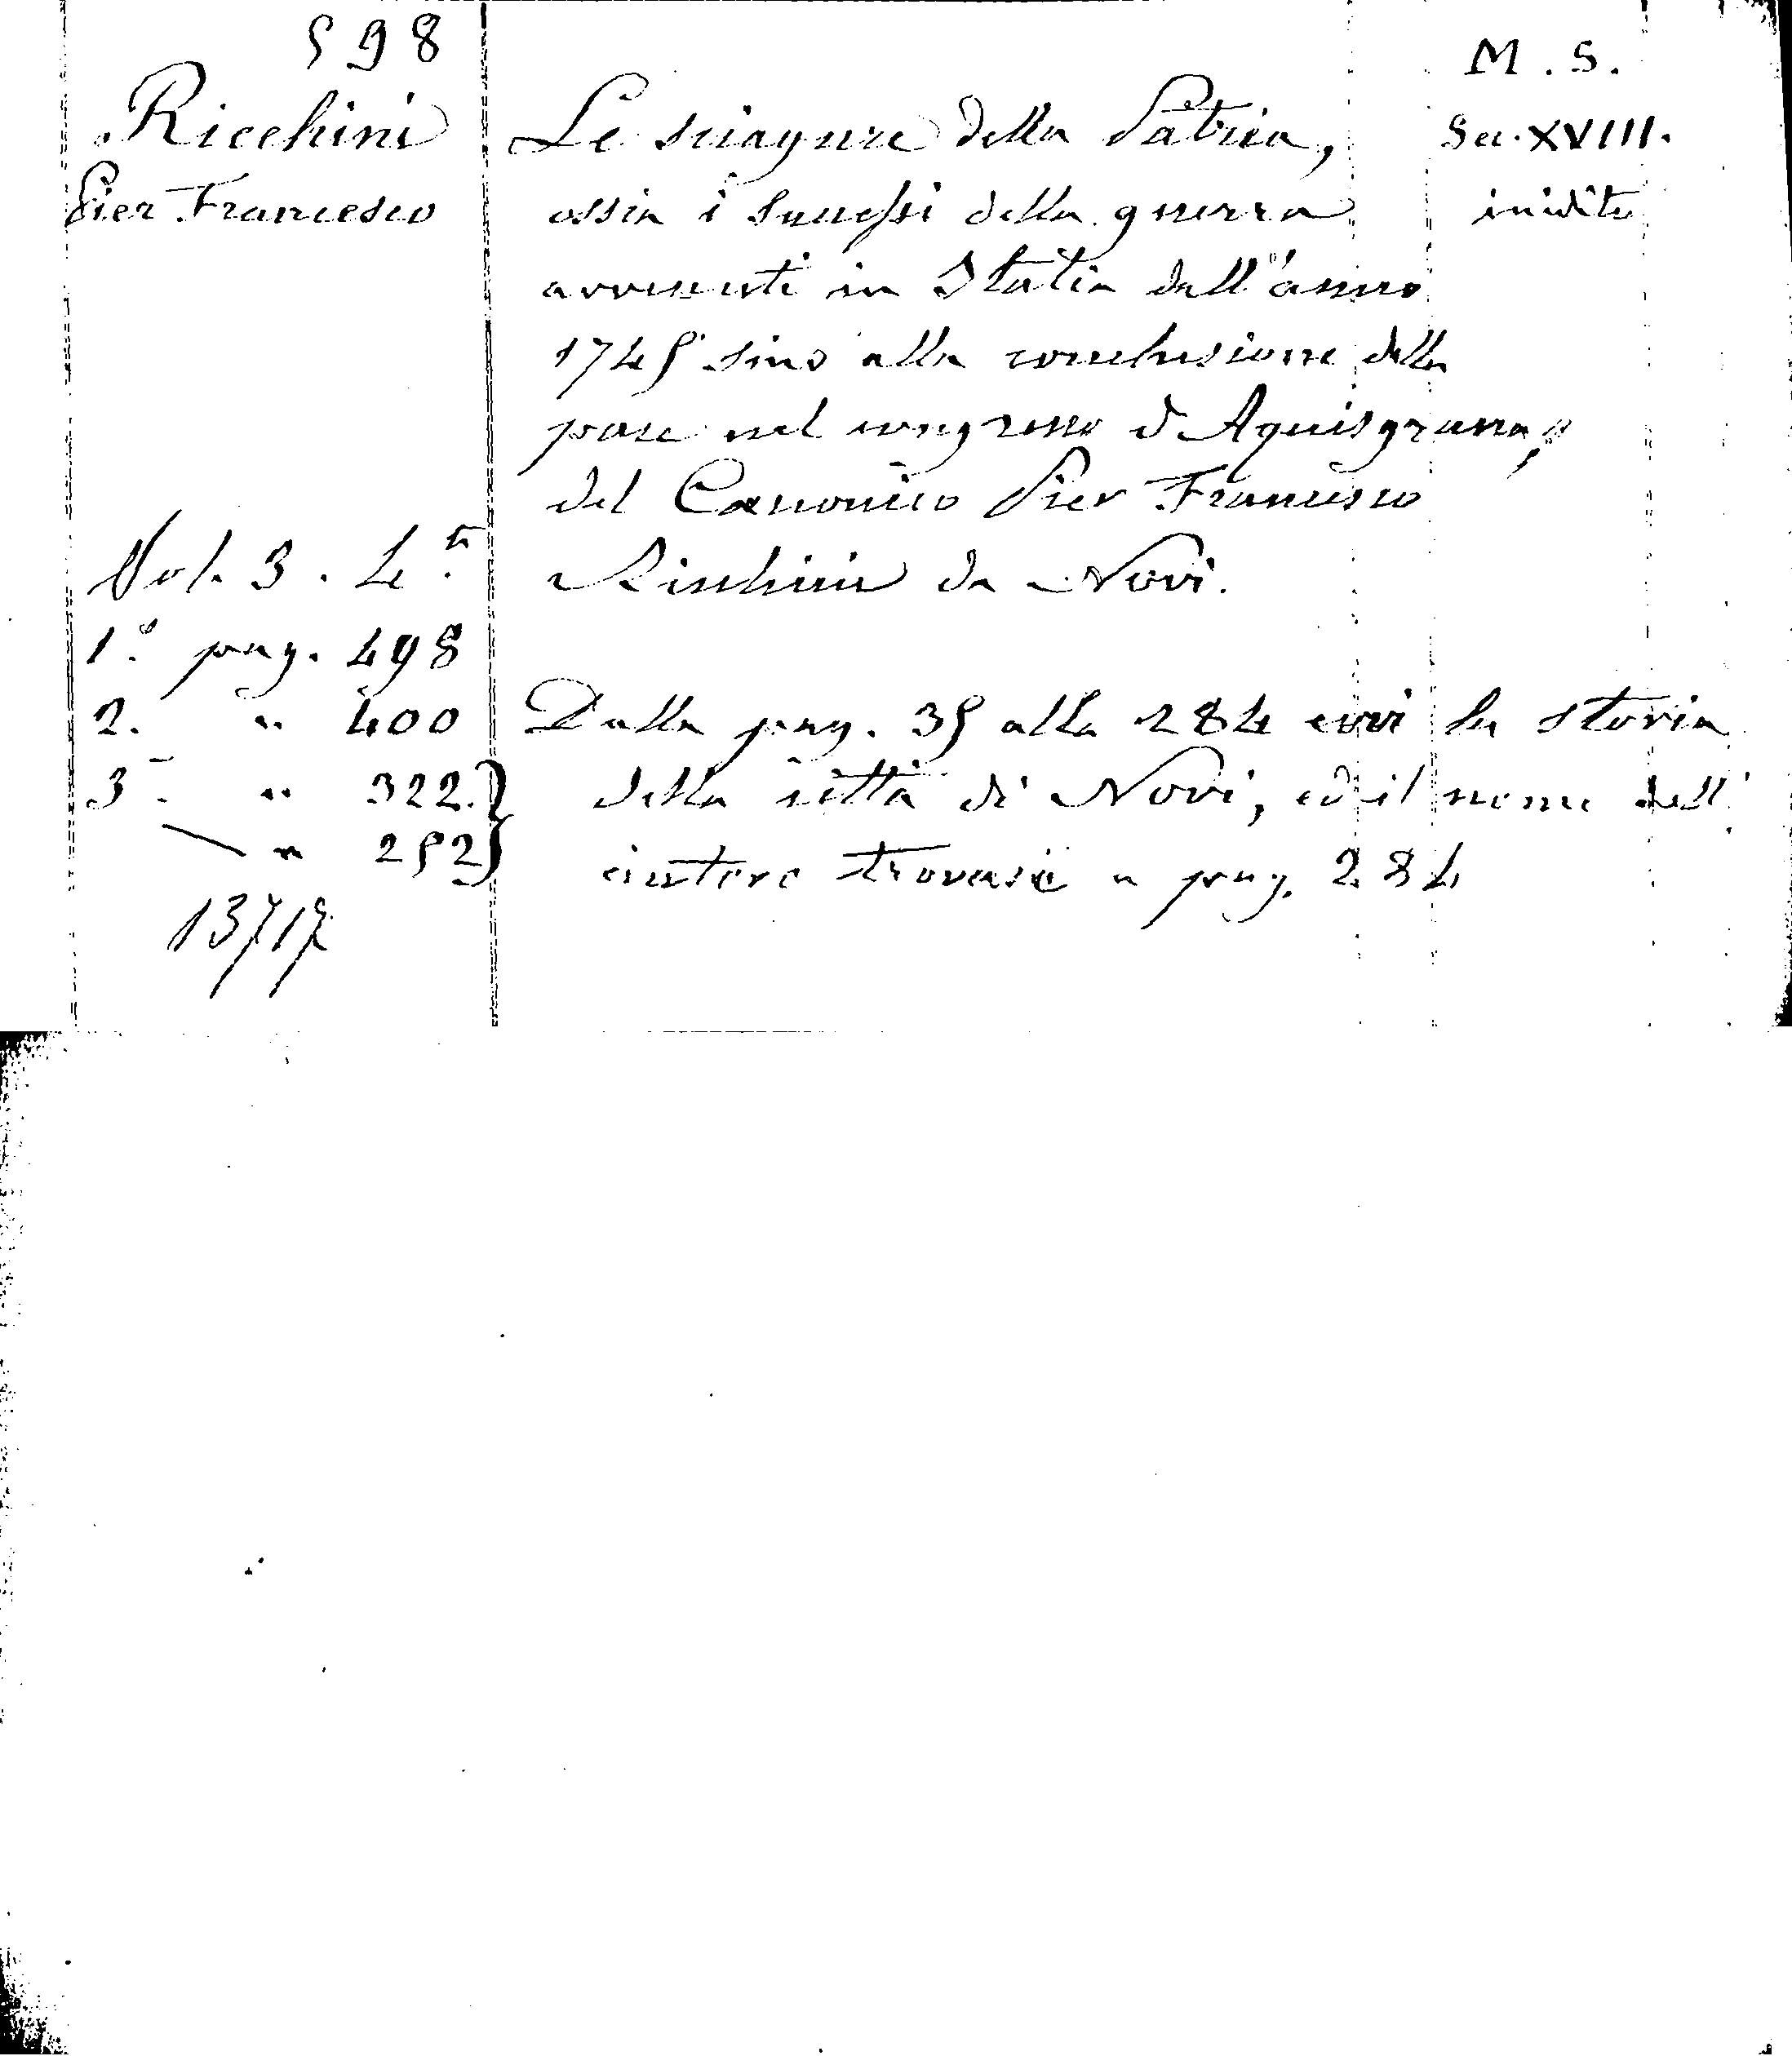 598
Ricchini
Pier Francesco
Vol. 3. 4.to
1.o pag. 498
2. " 400
3. " 322.
" 252
13717
Le sciagure della Patria,
ossia i Successi della guerra
avvenuti in Italia dall'anno
1745 sino alla conclusione della
pace nel congresso d'Aquisgrana,
del Canonico Pier Francesco
Ricchini da Novi.
Dalla pag. 35 alla 284 evvi la storia
della città di Novi, ed il nome dell'
autore trovasi a pag. 284
M. S.
Sec. XVIII.
inedito